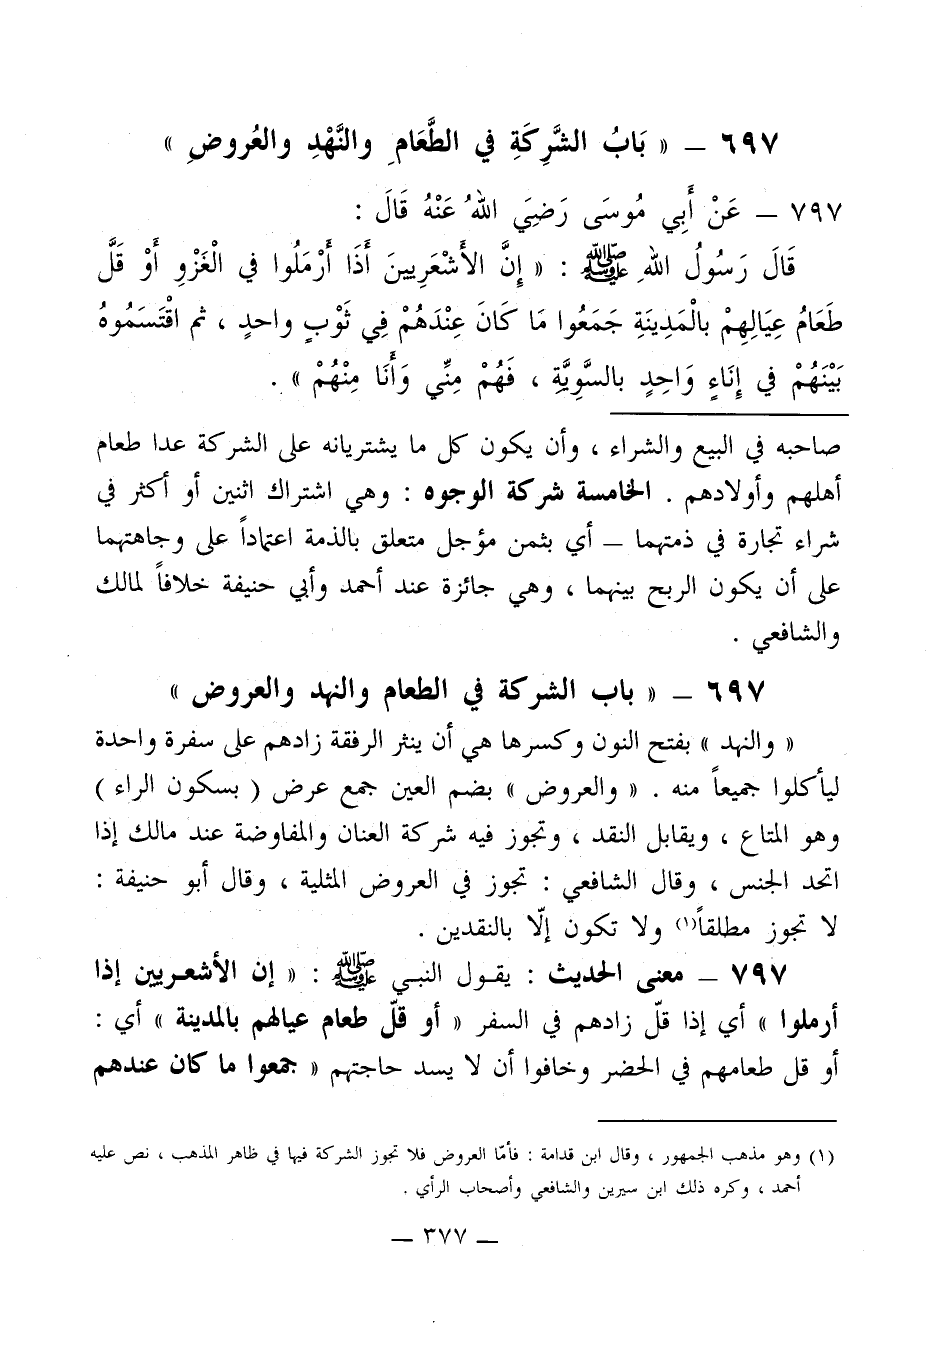 ٦٩٧ – « بَابُ الشَّرِكَةِ في الطَّعَامِ والنَّهْدِ والعُروضِ »
٧٩٧ – عَنْ أَبِي مُوسَى رَضِيَ اللهُ عَنْهُ قَالَ :
قَالَ رَسُولُ اللهِ ﷺ : « إِنَّ الأَشْعَرِيينَ أَذَا أَرْمَلُوا في الْغَزْوِ أَوْ قَلَّ
طَعَامُ عِيَالِهِمْ بالْمَدِينَةِ جَمَعُوا مَا كَانَ عِنْدَهُمْ فِي ثَوْبٍ واحدٍ ، ثم اقْتَسَمُوهُ
بَيْنَهُمْ في إِنَاءٍ وَاحِدٍ بالسَّوِيَّةِ ، فَهُمْ مِنِّي وَأَنَا مِنْهُمْ » .
صاحبه في البيع والشراء ، وأن يكون كل ما يشتريانه على الشركة عدا طعام
أهلهم وأولادهم . الخامسة شركة الوجوه : وهي اشتراك اثنين أو أكثر في
شراء تجارة في ذمتهما – أي بثمن مؤجل متعلق بالذمة اعتماداً على وجاهتهما
على أن يكون الربح بينهما ، وهي جائزة عند أحمد وأبي حنيفة خلافاً لمالك
والشافعي .
٦٩٧ – « باب الشركة في الطعام والنهد والعروض »
« والنهد » بفتح النون وكسرها هي أن ينثر الرفقة زادهم على سفرة واحدة
ليأكلوا جميعاً منه . « والعروض » بضم العين جمع عرض ( بسكون الراء )
وهو المتاع ، ويقابل النقد ، وتجوز فيه شركة العنان والمفاوضة عند مالك إذا
اتحد الجنس ، وقال الشافعي : تجوز في العروض المثلية ، وقال أبو حنيفة :
لا تجوز مطلقاً(١) ولا تكون إلّا بالنقدين .
٧٩٧ – معنى الحديث : يقول النبي ﷺ : « إن الأشعريين إذا
أرملوا » أي إذا قلّ زادهم في السفر « أو قلّ طعام عيالهم بالمدينة » أي :
أو قل طعامهم في الحضر وخافوا أن لا يسد حاجتهم « جمعوا ما كان عندهم
(١) وهو مذهب الجمهور ، وقال ابن قدامة : فأمّا العروض فلا تجوز الشركة فيها في ظاهر المذهب ، نص عليه
أحمد ، وكره ذلك ابن سيرين والشافعي وأصحاب الرأي .
– ٣٧٧ –